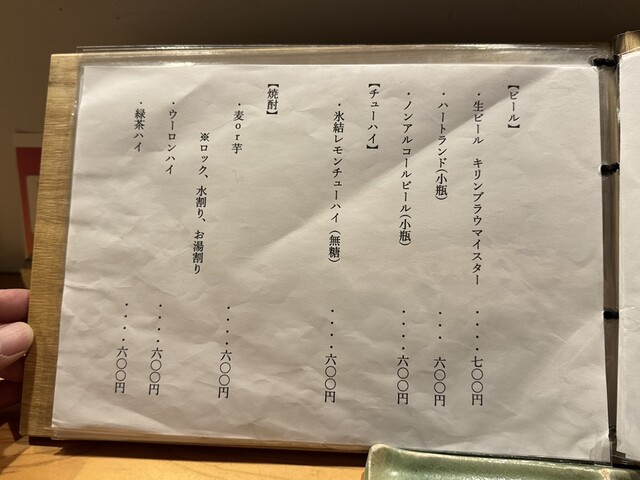 【ビール】
・生ビール　キリンブラウマイスター　・・・・七〇〇円
・ハートランド(小瓶)　・・・六〇〇円
・ノンアルコールビール(小瓶)　・・・・六〇〇円
【チューハイ】
・氷結レモンチューハイ（無糖）　・・・・六〇〇円
【焼酎】
・麦or芋　・・・・六〇〇円
※ロック、水割り、お湯割り
・ウーロンハイ　・・・・六〇〇円
・緑茶ハイ　・・・・六〇〇円